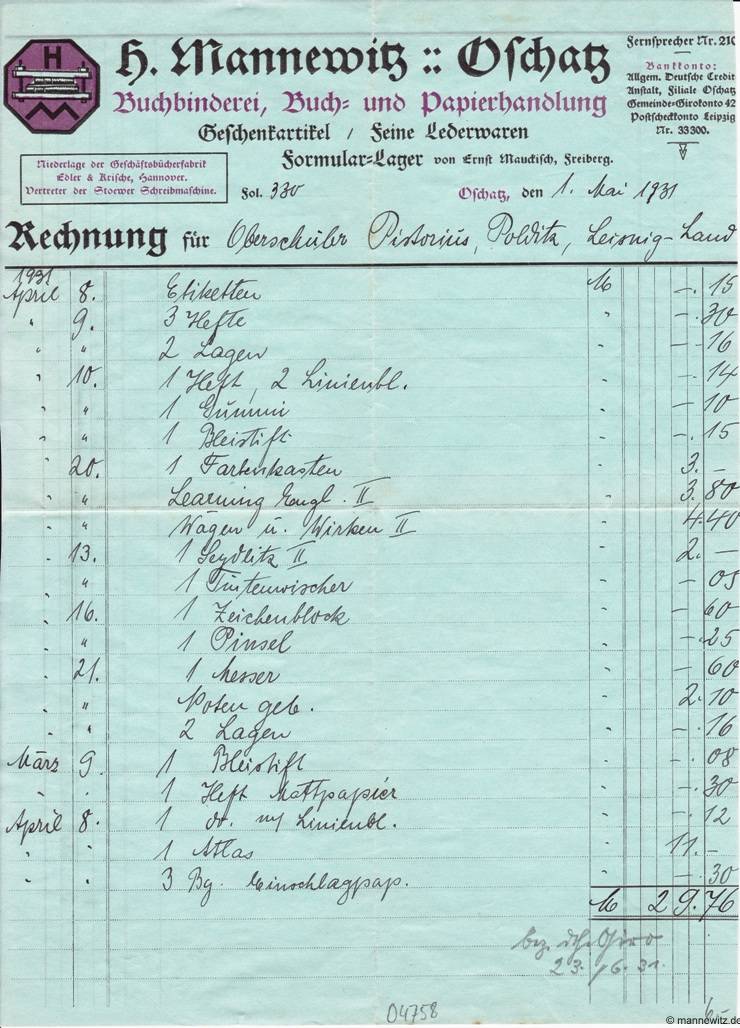 H
M
H. Mannewitz :: Oschatz
Buchbinderei, Buch- und Papierhandlung
Geschenkartikel / Feine Lederwaren
Formular-Lager von Ernst Mauckisch, Freiberg.
Fernsprecher Nr. 210
Bankkonto:
Allgem. Deutsche Credit
Anstalt, Filiale Oschatz
Gemeinde-Girokonto 42
Postscheckkonto Leipzig
Nr. 33300.
Niederlage der Geschäftsbücherfabrik
Edler & Krische, Hannover.
Vertreter der Stoewer Schreibmaschine.
Fol. 330
Oschatz, den 1. Mai 1931
Rechnung für Oberschüler Pistorius, Polditz, Leisnig-Land
1931
April 8. Etiketten M -. 15
" 9. 3 Hefte " -. 30
" " 2 Lagen " - 16
" 10. 1 Heft, 2 Linienbl. " -. 14
" " 1 Gummi " - 10
" " 1 Bleistift " -. 15
" 20. 1 Farbenkasten " 3. -
" " Learning Engl. II " 3. 80
" " Wägen u. Wirken II " 4. 40
" 13. 1 Seydlitz II " 2. -
" " 1 Tintenwischer " - 05
" 16. 1 Zeichenblock " - 60
" " 1 Pinsel " - 25
" 21. 1 Messer " - 60
" " Noten geb. " 2. 10
" " 2 Lagen " -. 16
März 9. 1 Bleistift " -. 08
" " 1 Heft Mattpapier " -. 30
April 8. 1 do. m/ Linienbl. " -. 12
" " 1 Atlas " 11. -
" " 3 Bg. Einschlagpap. " -. 30
M 29.76
bez. dch. Giro
23./6.31.
04758
© mannewitz.de